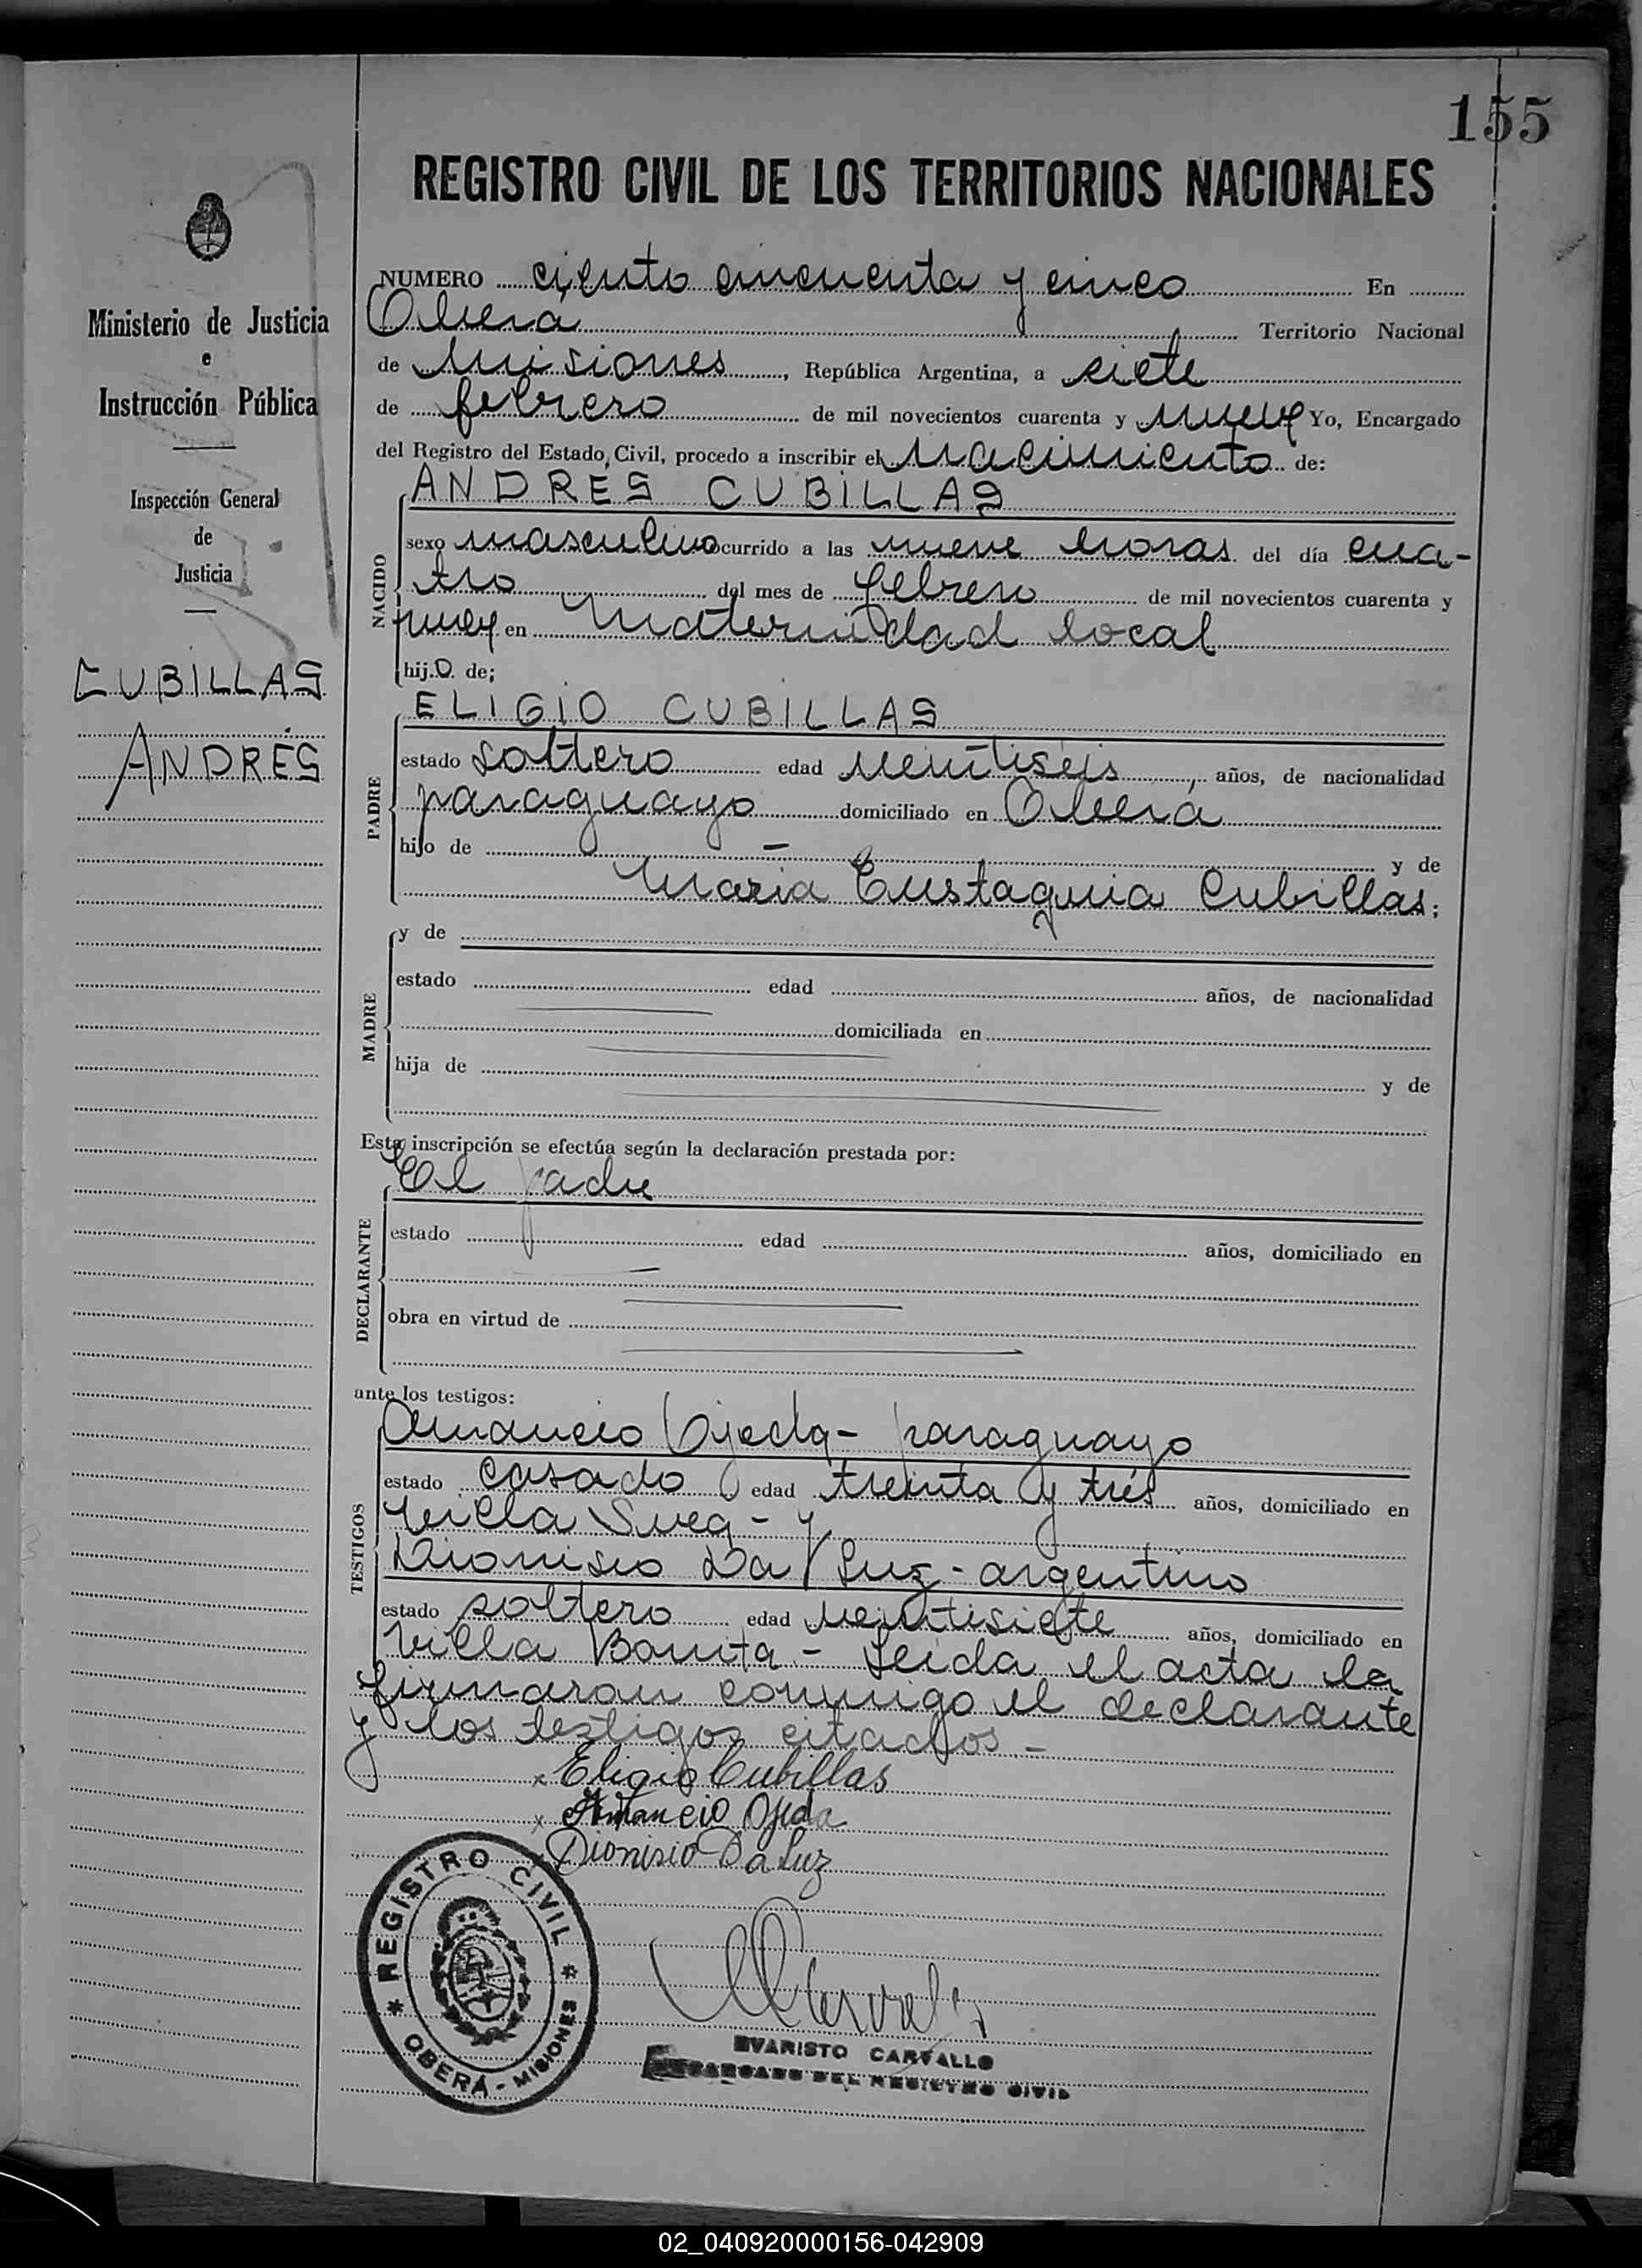 155
REGISTRO CIVIL DE LOS TERRITORIOS NACIONALES
Ministerio de Justicia
e
Instrucción Pública
Inspección General
de
Justicia
CUBILLAS
ANDRÉS
NUMERO ciento cincuenta y cinco En
Oberá Territorio Nacional
de Misiones, República Argentina, a siete
de febrero de mil novecientos cuarenta y nueve Yo, Encargado
del Registro del Estado Civil, procedo a inscribir el nacimiento de:
ANDRES CUBILLAS
NACIDO
sexo masculino ocurrido a las nueve horas del día cua-
tro del mes de febrero de mil novecientos cuarenta y
nueve en Maternidad local
hijo de;
ELIGIO CUBILLAS
PADRE
estado soltero edad veintiséis, años, de nacionalidad
paraguayo domiciliado en Oberá
hijo de - y de
María Eustaquia Cubillas;
MADRE
y de
estado edad años, de nacionalidad
domiciliada en
hija de y de
Esta inscripción se efectúa según la declaración prestada por:
El padre
DECLARANTE
estado edad años, domiciliado en
obra en virtud de
ante los testigos:
Amancio Ojeda - paraguayo
TESTIGOS
estado casado edad treinta y tres años, domiciliado en
Villa Svea - y
Dionisio Da Luz - argentino
estado soltero edad veintisiete años, domiciliado en
Villa Bonita - Leída el acta la
firmaron conmigo el declarante
y los testigos citados.-
x Eligio Cubillas
x Amancio Ojeda
Dionisio Da Luz
REGISTRO CIVIL
OBERÁ - MISIONES
EVARISTO CARVALLO
ENCARGADO DEL REGISTRO CIVIL
02_040920000156-042909